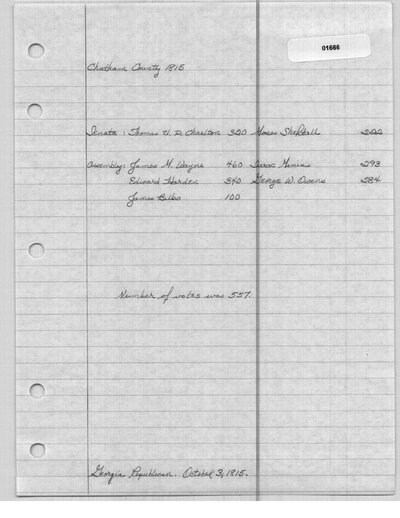 01666
Chatham County 1815
Senate: Thomas U. P. Charlton 320 Moses Sheftall 222
Assembly: James M. Wayne 460 Isaac Minis 293
Edward Harden 340 George W. Owens 284
James Bilbo 100
Number of votes was 557.
Georgia Republican. October 3, 1815.